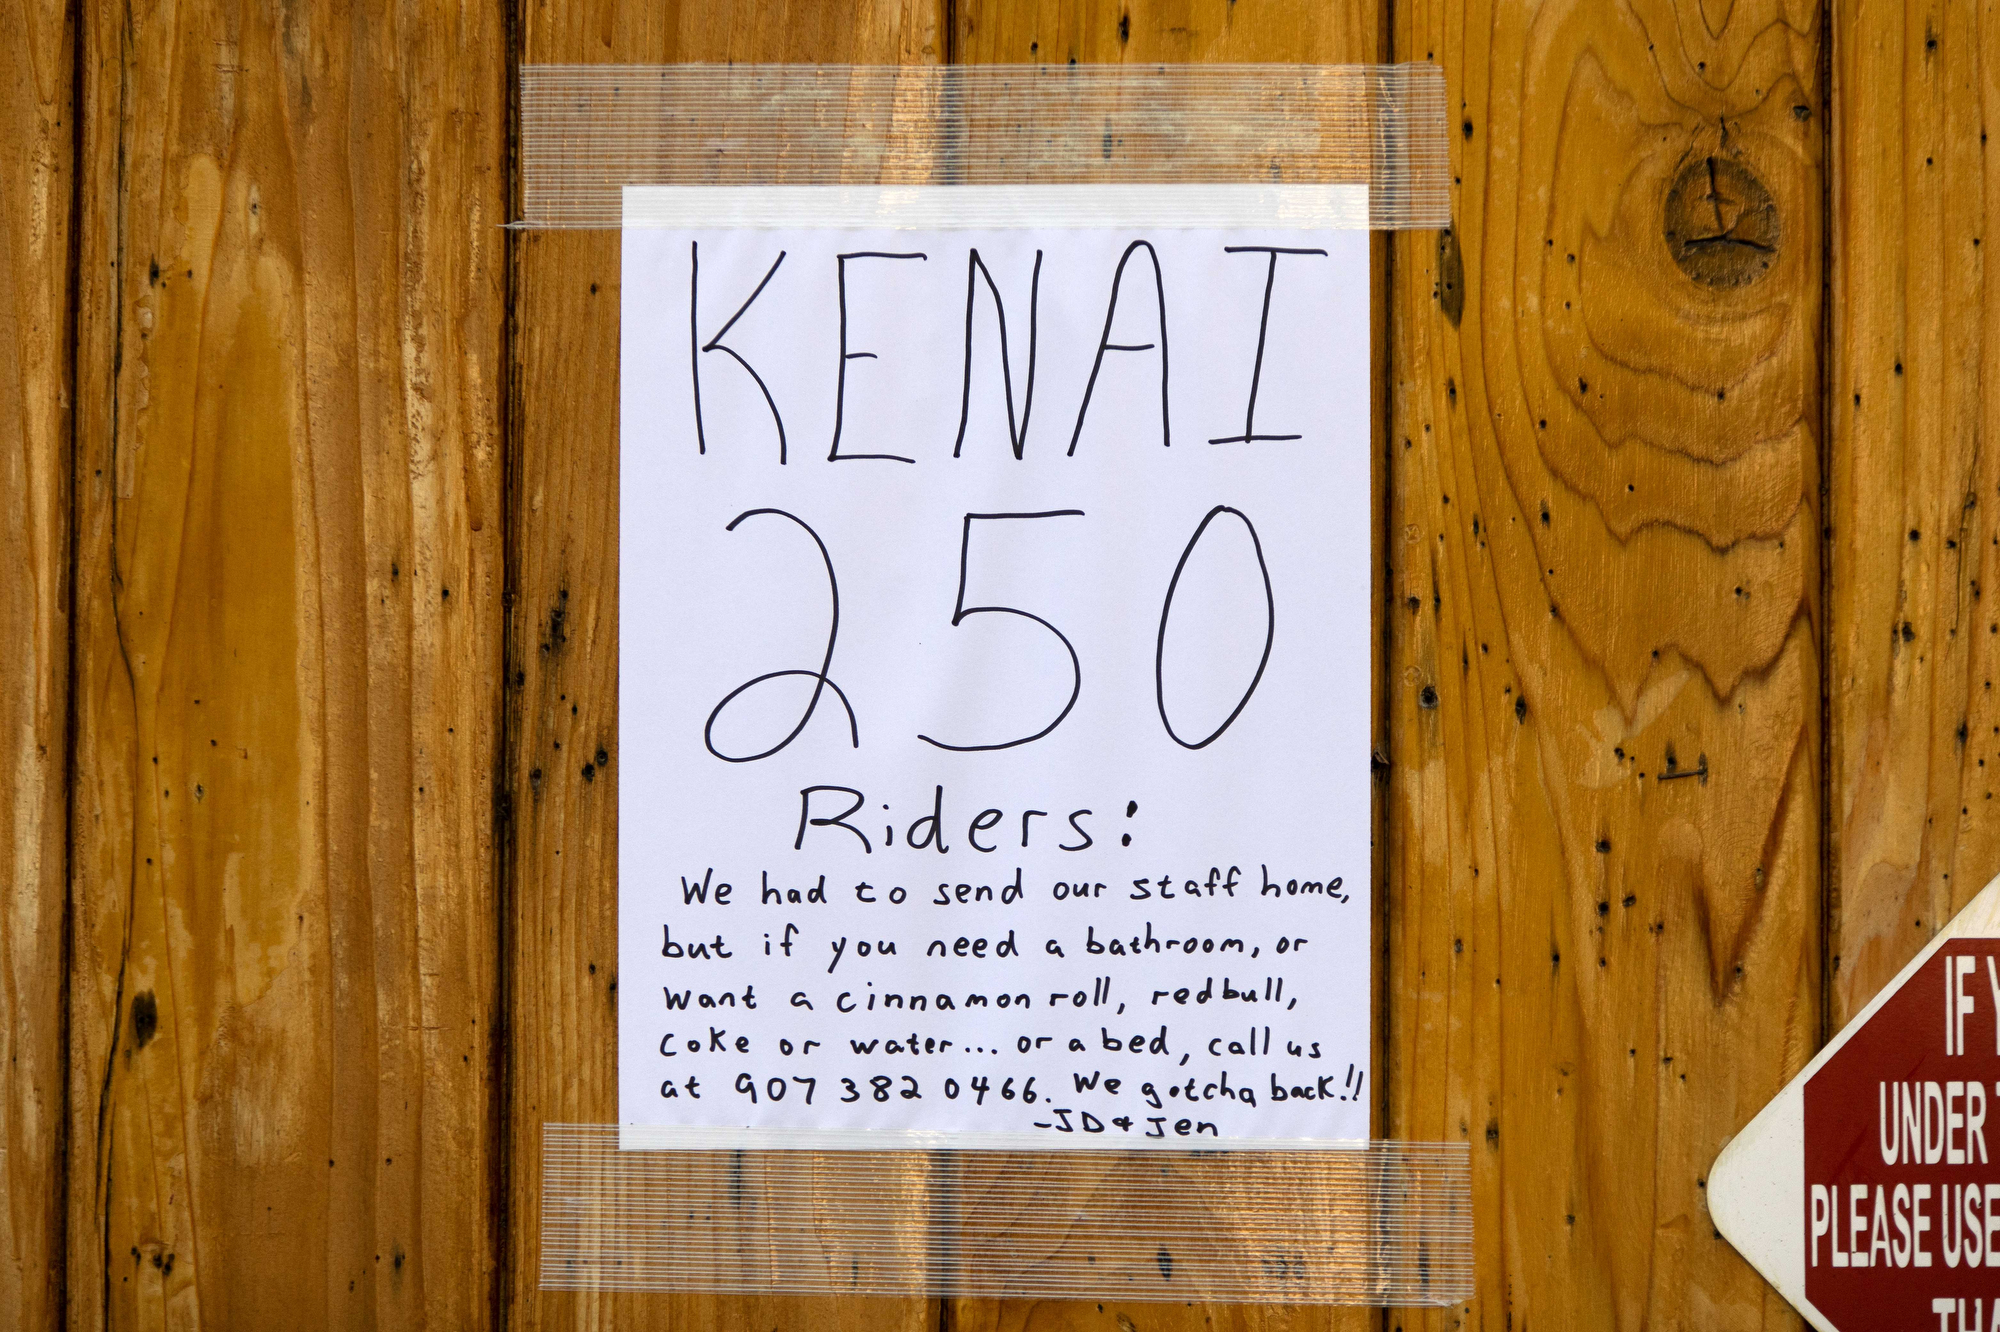 KENAI
250
Riders:
We had to send our staff home,
but if you need a bathroom, or
want a cinnamon roll, redbull,
coke or water... or a bed, call us
at 907 382 0466. We gotcha back!!
-JD & Jen
IF
UNDER
PLEASE USE